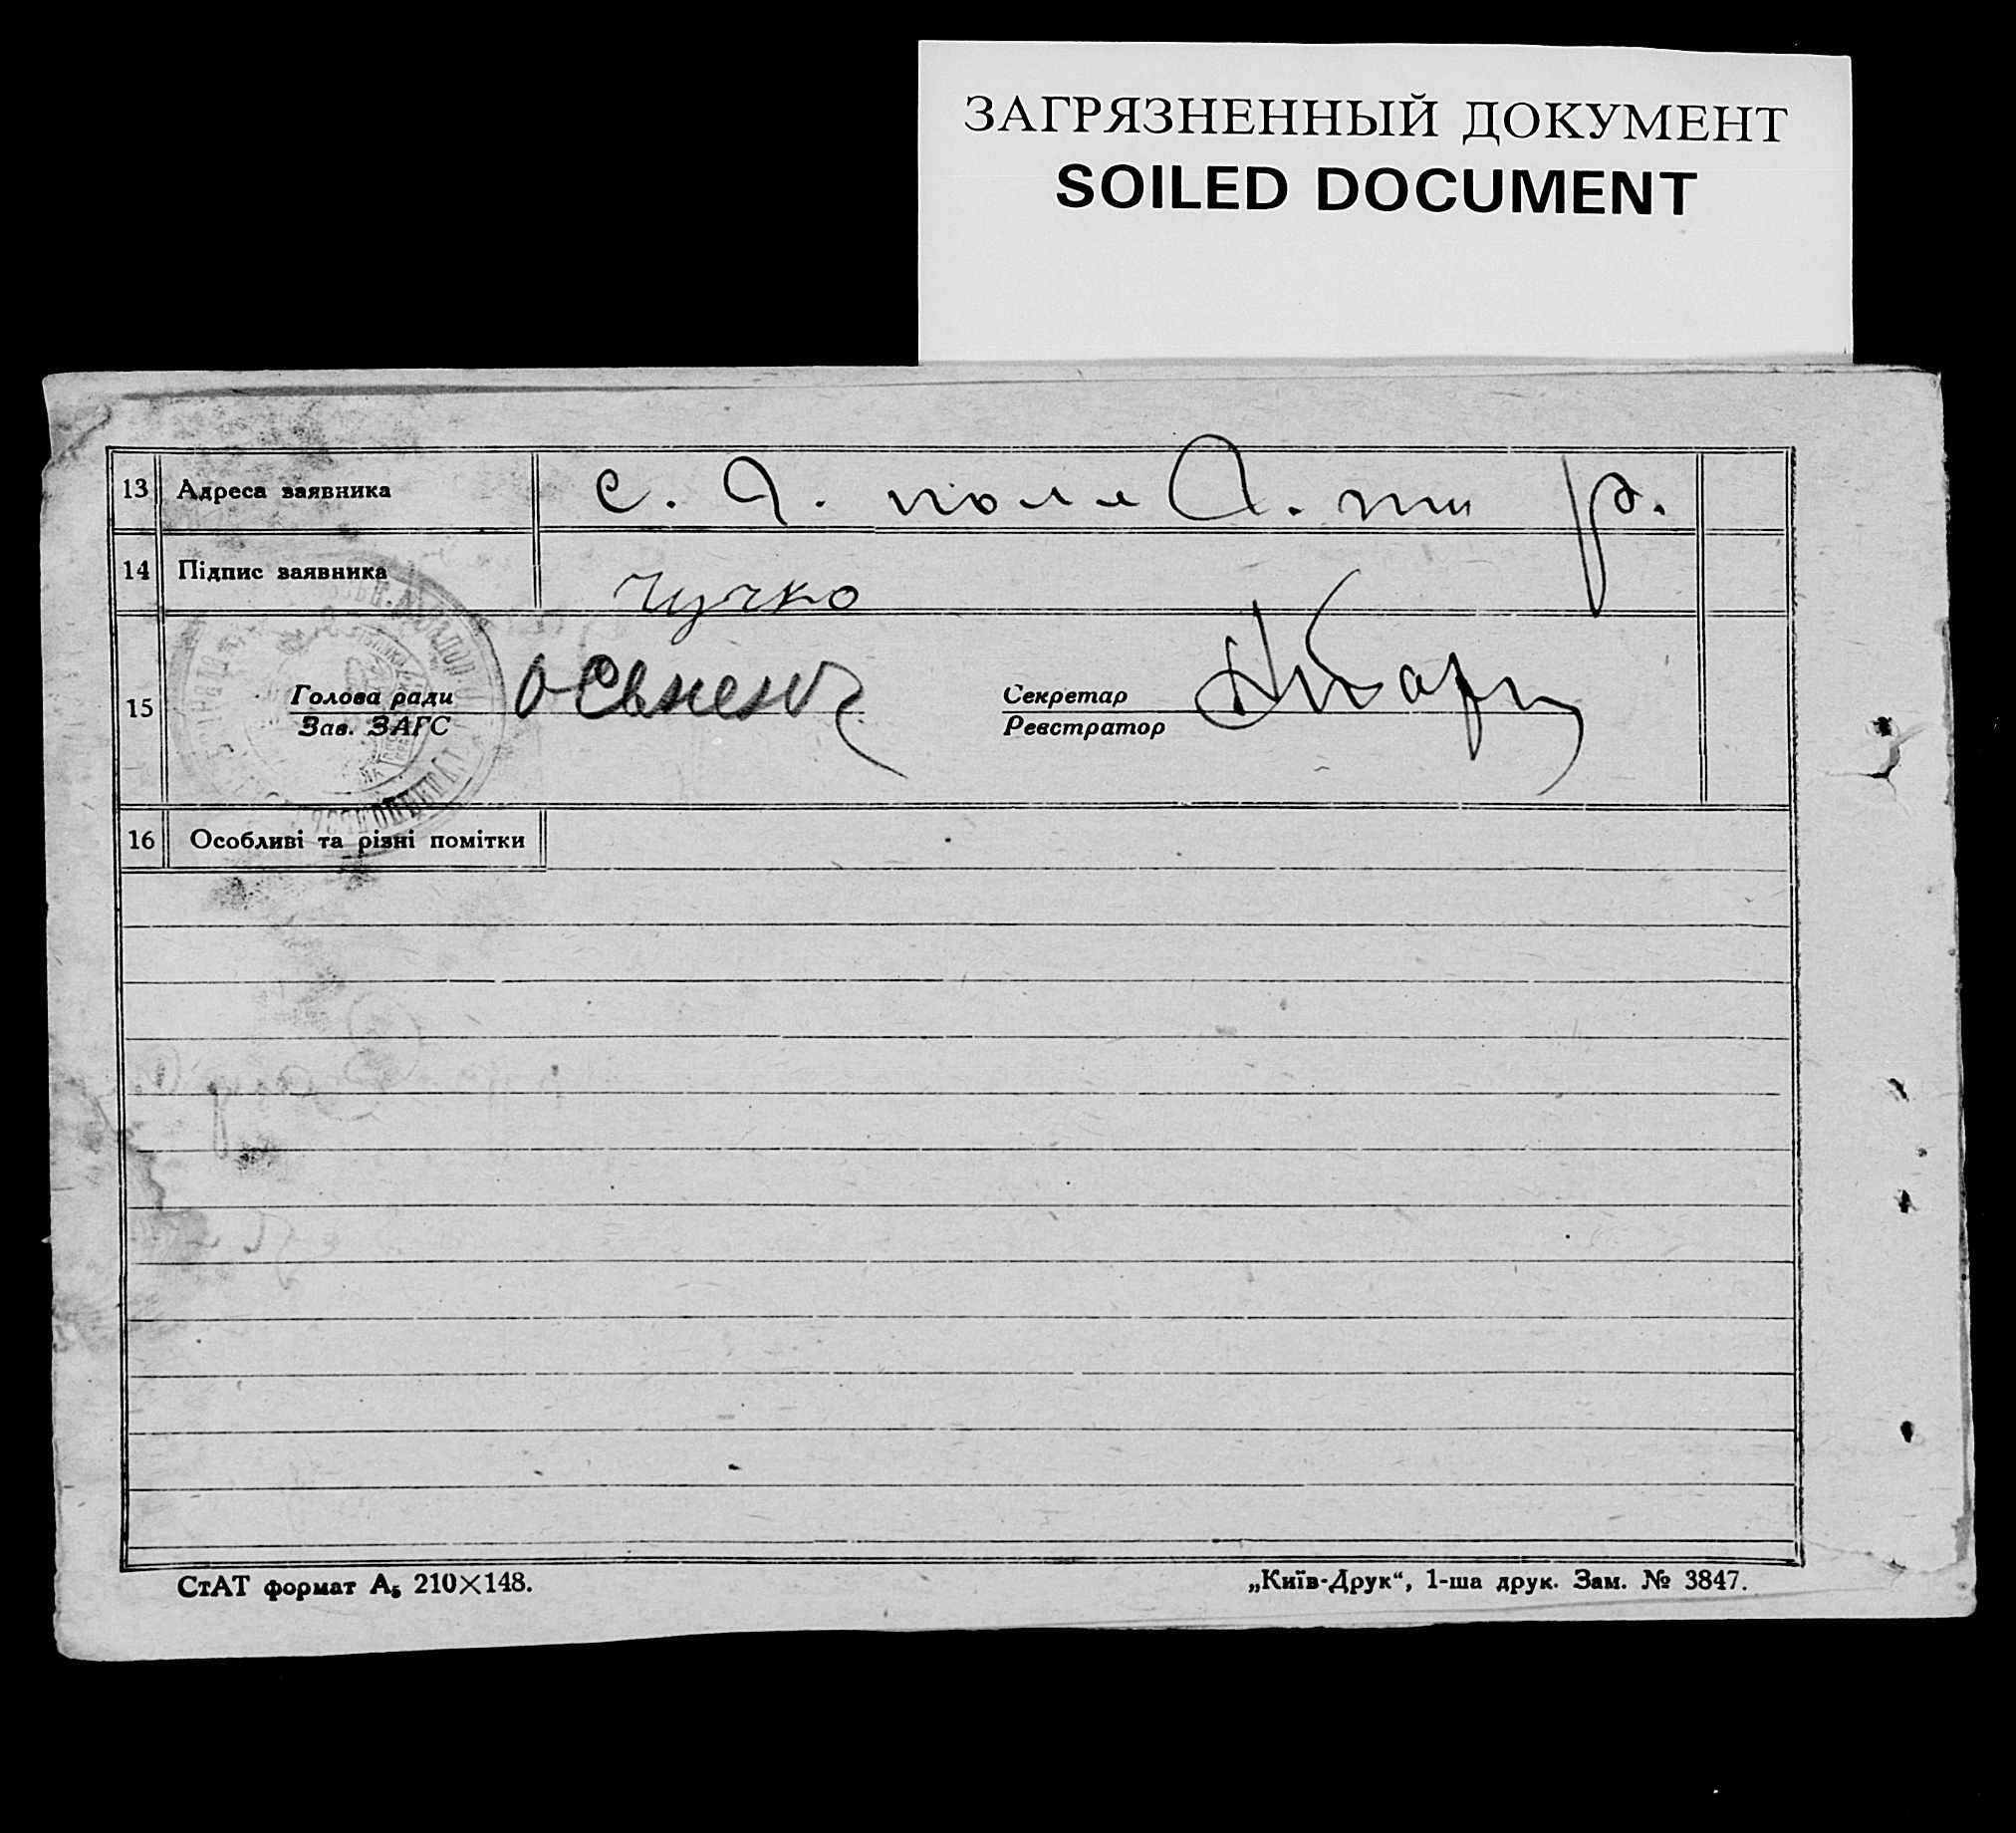 ЗАГРЯЗНЕННЫЙ ДОКУМЕНТ
SOILED DOCUMENT
13 Адреса заявника с. Я. поля р.
14 Підпис заявника Чучко
15 Голова ради
Зав. ЗАГС
Секретар
Реєстратор
16 Особливі та різні помітки
СтАТ формат А5 210×148.
„Київ-Друк“, 1-ша друк. Зам. № 3847.